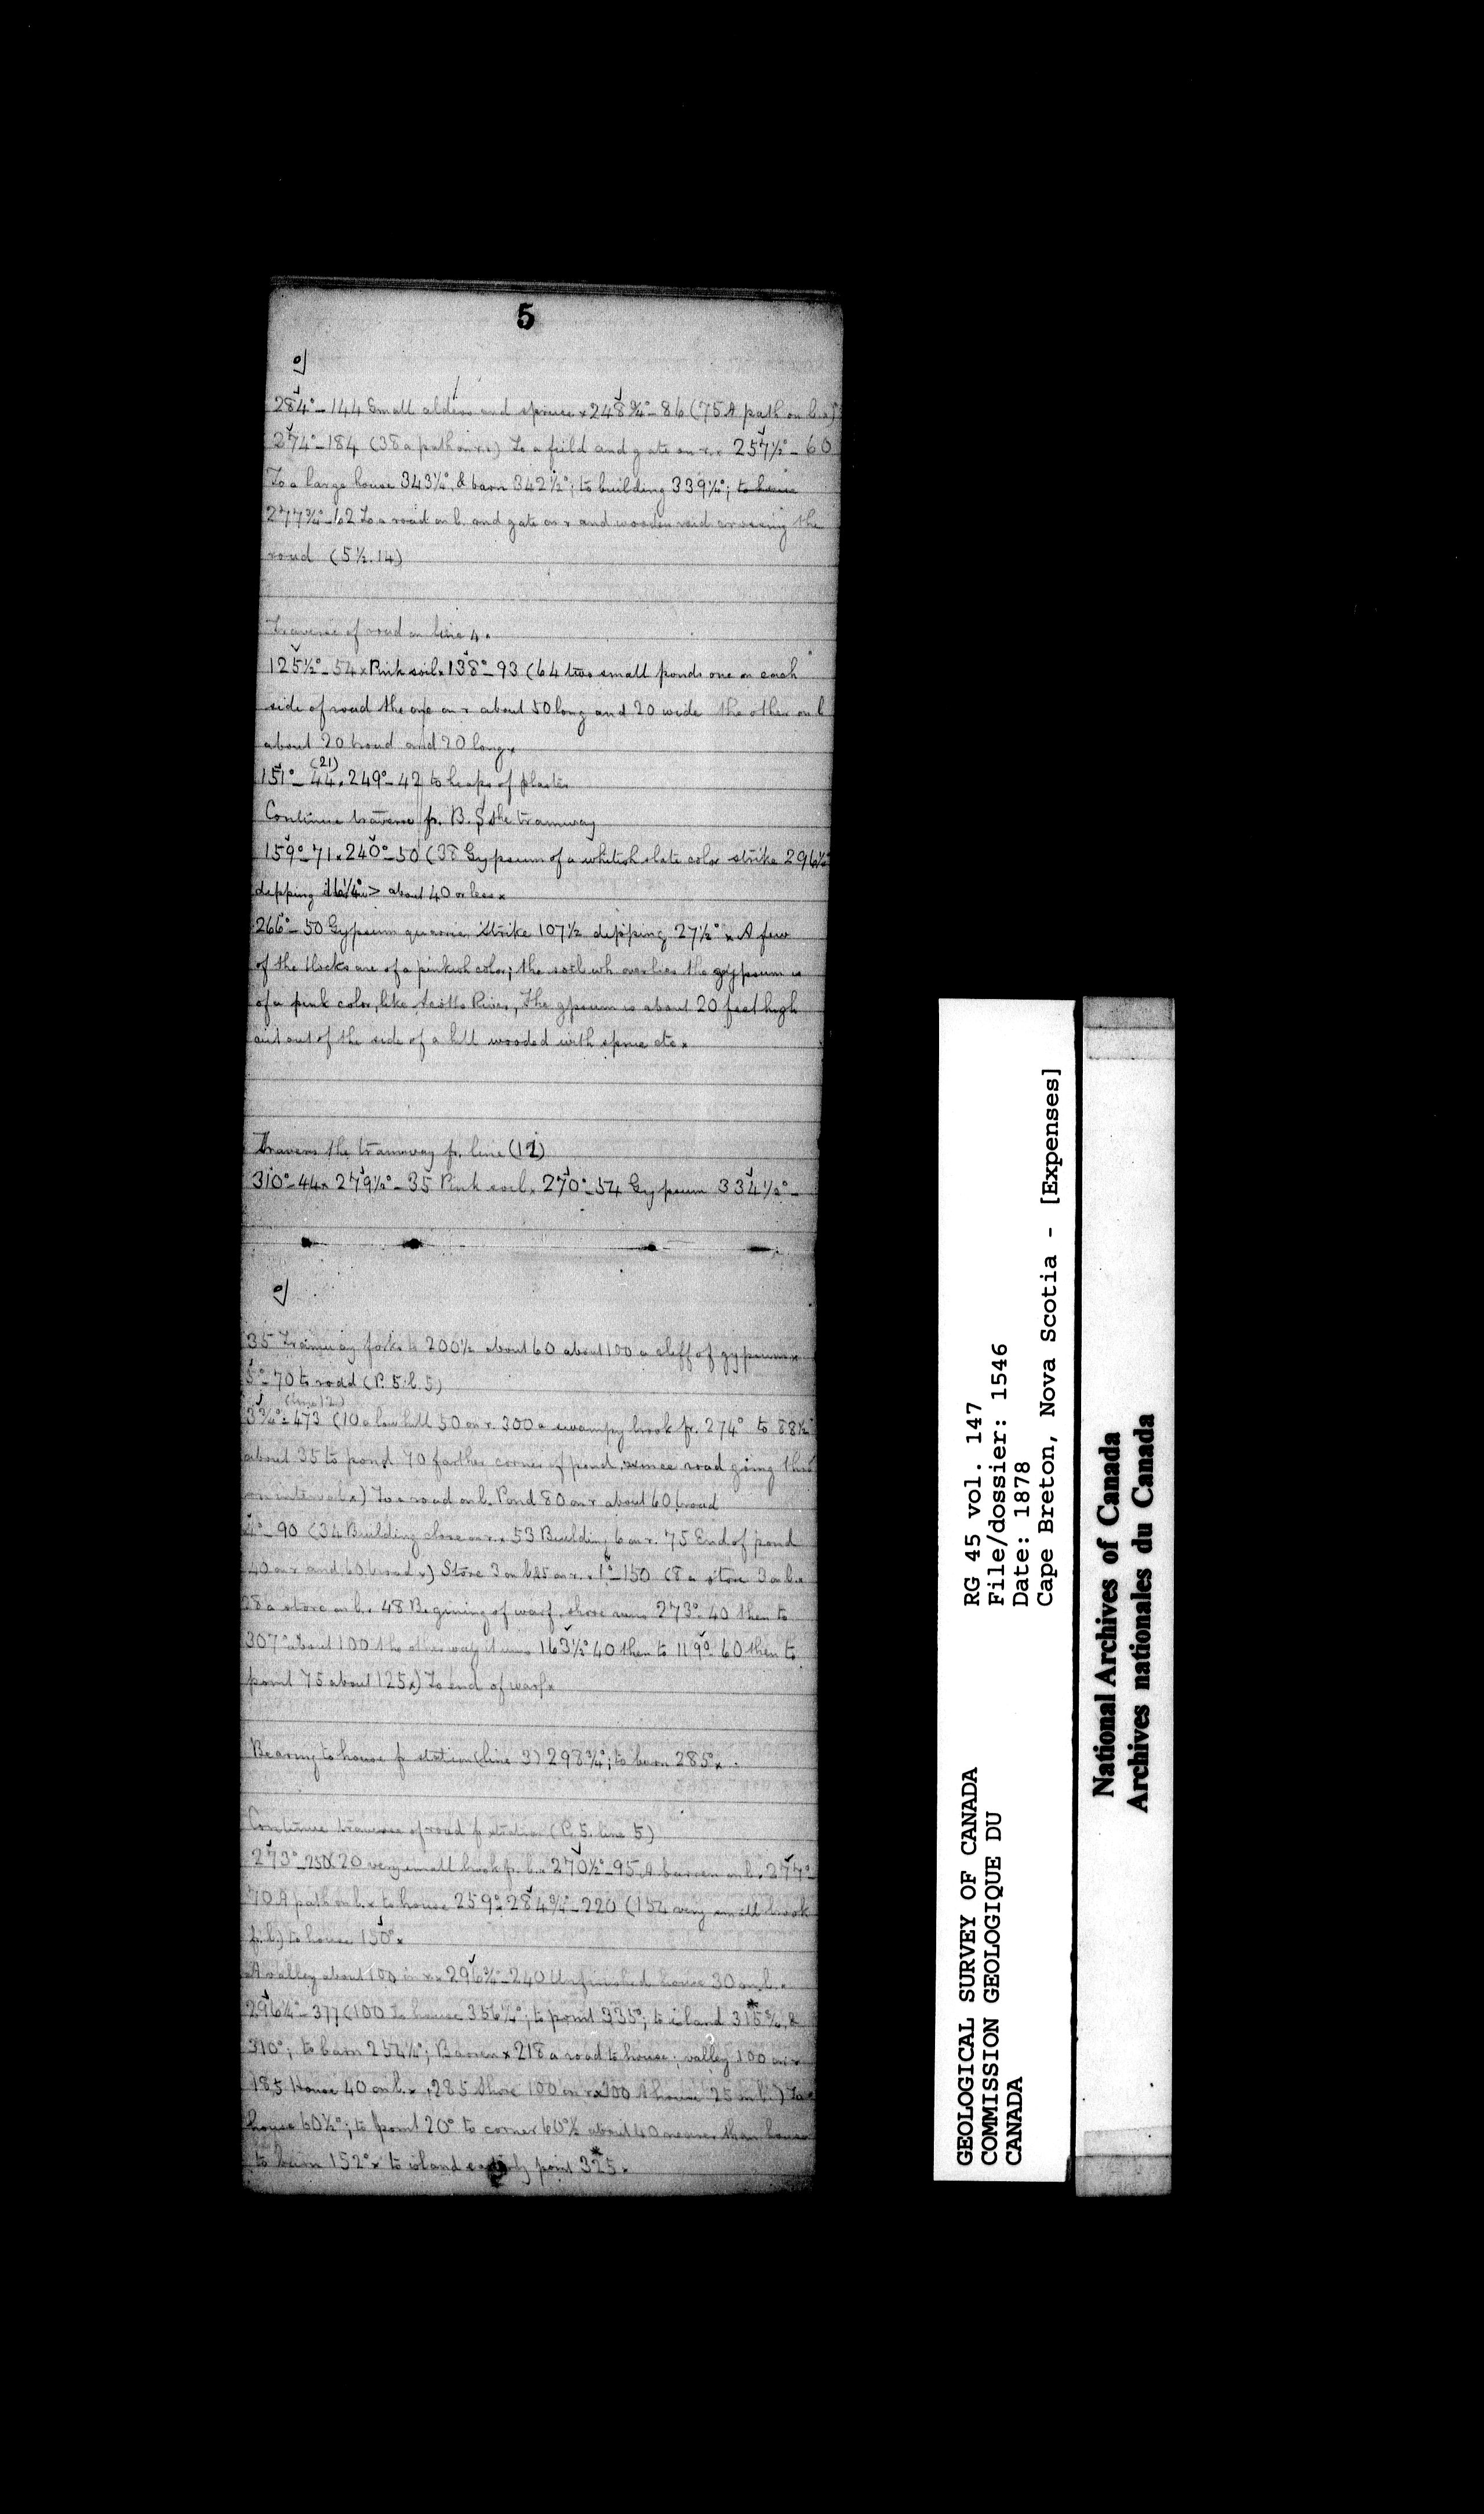 5
284°-144 Small alders and spruce x 248¾°-86 (75 A path on l.x)
274°-184 (38 a path on r.x) To a field and gate on r.x 257½°-60
To a large house 343¼°, & barn 342½°; to building 339¼°; to house
277¾°-162 To a road on l. and gate on r and wooden crossing the
road (5½.14)
Traverse of road on line 4.
125½°-54 x Pink soil x 138°-93 (64 two small ponds one on each
side of road the one on r about 50 long and 20 wide the other on l
about 20 broad and 20 long x
(21)
151°-44. 249°-42 to heaps of plaster
Continue traverse fr. B. S the tramway
159°-71 x 240°-50 (38 Gypsum of a whitish slate color strike 296½°
depping > about 40 or less x
266°-50 Gypsum quarries Strike 107½ depping 27½° x A few
of the blocks are of a pinkish color; the soil wh overlies the gypsum is
of a pink color, like Scotts River, The gpsum is about 20 feet high
out of the side of a hill wooded with spruce etc x
Travers the tramway fr. line (12)
310°-44 x 279½°-35 Pink soil x 270°-54 Gypsum 334½°-
35 Tramway forks to 200½ about 60 about 100 a cliff of gypsum x
5°-70 to road (P. 5. l. 5)
(line 12)
3¾°-473 (10 a low hill 50 on r. 300 a swampy brook fr. 274° to 88½°
about 35 to pond 70 farther corner of pond, road going thro
an interval x) To a road on l. Pond 80 on r about 60 broad
4°-90 (34 Building close on r.x 53 Building 6 on r. 75 End of pond
40 on r and 60 broad x) Store 3 on l 25 on r. x 1°-150 (8 a store 3 on l.x
28 a store on l. 48 Begining of warf. shore runs 273°-40 then to
307° about 100 the other way it runs 163½° 40 then to 119°-60 then to
point 75 about 125 x) To end of warf x
Bearing to house fr station (line 3) 298¾°; to barn 285° x
Continue traverse of road fr station (P. 5. line 5)
273°-250 (20 very small brook fr. l.x 270½°-95 A barren on l. 277°-
70 A path on l.x to house 259° 284¾°-220 (154 very small brook
fr. l.) to house 150° x
A valley about 100 on r.x 296¾°-240 Unfinished house 30 on l.x
296¼°-377 (100 To house 356¼°; to point 335°; to island 315¾, &
310°; to barn 254¼°; Barren x 218 a road to house; valley 100 on r
185 House 40 on l.x 285 Shore 100 on r x 300 A house 25 on l.) To
house 60½°; to point 20° to corner 60½ about 40 nearer than house
to barn 152° x to island easterly point 325 x
GEOLOGICAL SURVEY OF CANADA
COMMISSION GEOLOGIQUE DU
CANADA
RG 45 vol. 147
File/dossier: 1546
Date: 1878
Cape Breton, Nova Scotia - [Expenses]
National Archives of Canada
Archives nationales du Canada